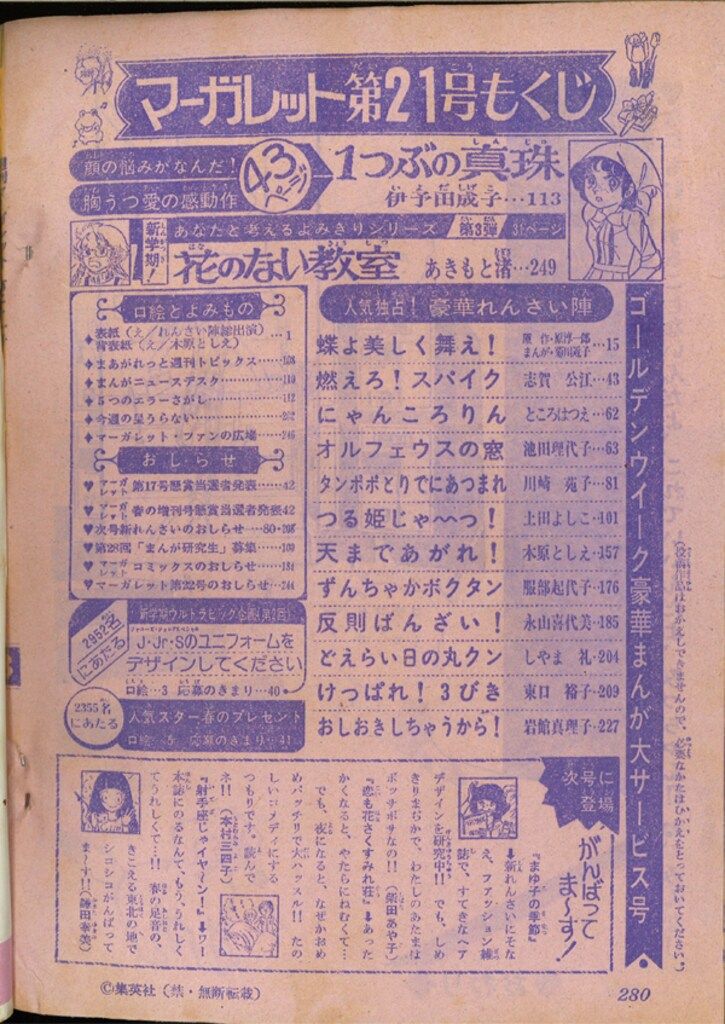 マーガレット第21号もくじ
顔の悩みがなんだ!
胸うつ愛の感動作
43ページ
1つぶの真珠
伊予田成子…113
新学期!
あなたと考えるよみきりシリーズ 第3弾 31ページ
花のない教室 あきもと渚…249
口絵とよみもの
表紙(え/れんさい陣総出演)
背表紙(え/木原としえ) …1
♦まあがれっと週刊トピックス……108
♦まんがニュースデスク……110
♦5つのエラーさがし……112
♦今週の星うらない……202
♦マーガレット・ファンの広場……246
おしらせ
♥マーガレット第17号懸賞当選者発表……42
♥マーガレット春の増刊号懸賞当選者発表42
♥次号新れんさいのおしらせ…80・208
♥第28回「まんが研究生」募集……109
♥マーガレットコミックスのおしらせ……184
♥マーガレット第22号のおしらせ…244
新学期ウルトラビッグ企画(第2回)
2992名にあたる
J・Jr・Sのユニフォームを
デザインしてください
口絵…3 応募のきまり…40
2355名にあたる
人気スター春のプレゼント
口絵…5 応募のきまり…41
人気独占!豪華れんさい陣
蝶よ美しく舞え! 原作・原淳一郎 まんが・菊川近子…15
燃えろ!スパイク 志賀公江…43
にゃんころりん ところはつえ…62
オルフェウスの窓 池田理代子…63
タンポポとりでにあつまれ 川崎苑子…81
つる姫じゃ〜っ! 土田よしこ…101
天まであがれ! 木原としえ…157
ずんちゃかボクタン 服部起代子…176
反則ばんざい! 永山喜代美…185
どえらい日の丸クン しやま礼…204
けっぱれ!3びき 東口裕子…209
おしおきしちゃうから! 岩館真理子…227
ゴールデンウイーク豪華まんが大サービス号
(投稿作品はおかえしできませんので、必要なかたはひかえをとっておいてください。)
次号に登場
がんばってま〜す!
『まゆ子の季節』
➡新れんさいにそな
え、ファッション雑
誌で、すてきなヘア
デザインを研究中!!でも、しめ
きりまぢかで、わたしのあたまは
ボッサボサなの!!(柴田あや子)
『恋も花さくすみれ荘』➡あった
かくなると、やたらにねむくて…
でも、夜になると、なぜかおめ
めパッチリで大ハッスル!!たの
しいコメディにする
つもりです。読んで
ネ!!(本村三四子)
『射手座じゃイヤ〜ン!』➡ワー
本誌にのるなんて、もう、うれしく
てうれしくて…!!春の足音の、
きこえる東北の地で
シコシコがんばって
ま〜す!!(鎌田幸美)
©集英社(禁・無断転載)
280